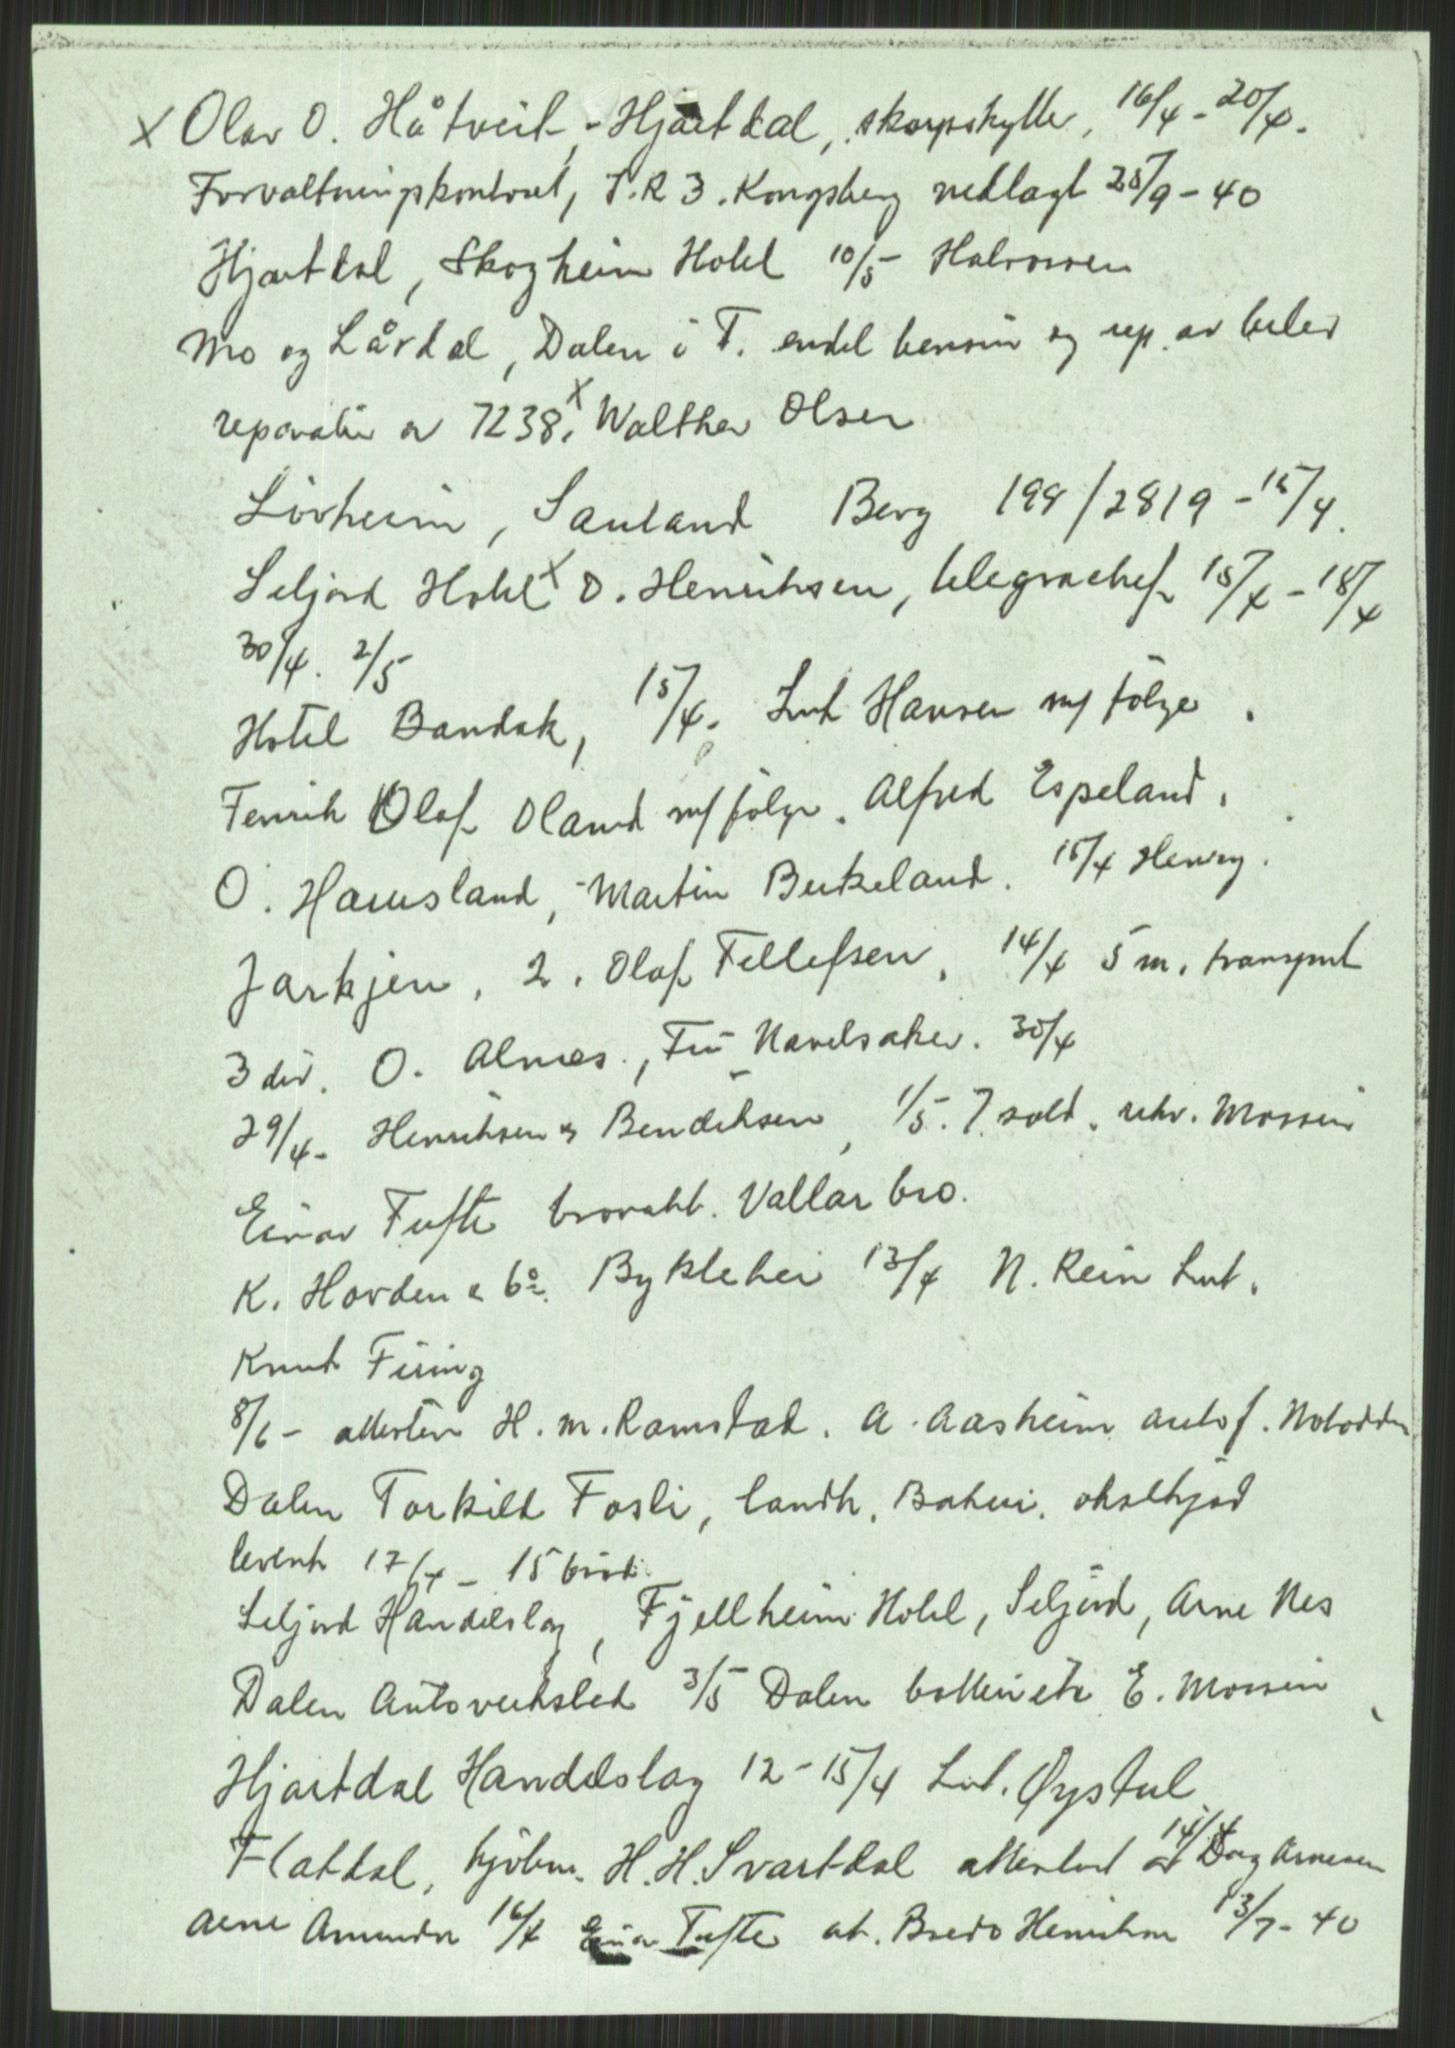 x Olav O. Håtveit, - Hjartdal, skarpskytter, 16/4 - 20/4.
Forvaltningskontoret, I.R 3. Kongsberg nedlagt 25/9 - 40
Hjartdal, Skogheim Hotel 10/5 - Halvorsen
Mo og Lårdal, Dalen i T. endel bensin og rep. av biler
reparation av 7238. x Walther Olsen
Livheim, Sauland Berg 199/2819 - 15/4.
Seljord Hotel x O. Henriksen, telegrachef 15/4 - 18/4
30/4. 2/5
Hotel Bandak, 15/4. Lnt Hansen m/ følge.
Fenrik Olaf Oland m/ følge. Alfred Espeland.
O. Hamsland, - Martin Birkeland. 15/4 Henry.
Jarkjen, 2. Olaf Tellefsen. 14/4 5 m. transport
3 div. O. Almes., Fru Navelsaker. 30/4
29/4 - Henriksen & Bendiksen, 1/5. 7 sold. rekv. Mossin
Einar Tufte brovakt. Vallar bro.
K. Hovden & Co. Byklehei 13/4 N. Rein Lnt.
Knut Fining
8/6 - attesten H. M. Ramstad. A. Aasheim autof. Notodden
Dalen Torkild Fosli, landh. okselkjød
levert 17/4 - 15 brød.
Seljord Handelslag, Fjellheim Hotel, Seljord, Arne Nes
Dalen Autoverksted 3/5 Dalen batteri etc E. Mossin
Hjartdal Handelslag 12 - 15/4 Lnt. Øystul
Flatdal, kjøbm. H. H. Svartdal attestert av 14/4 Dag Arnesen
Arne Amundsen 16/4 Einar Tufte at. Bredo Henriksen 13/7 - 40